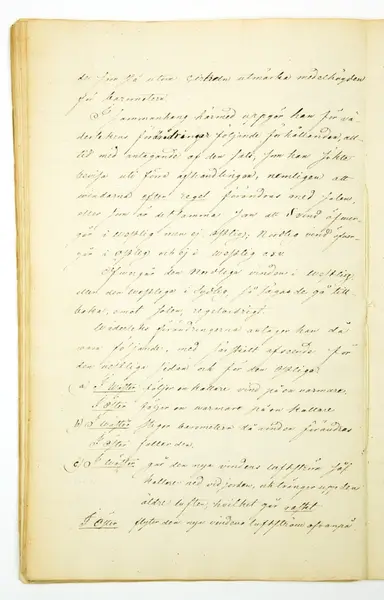 de som på utan cirkeln utmärka medelhögden
för barometern.
I sammanhang härmed uppgår han för vä
derlekens förändringar följande förhållanden, all-
tid med antagande af den sats, som han sökt
bevisa uti sina afhandlingar, nemligen att
vindarna efter regel förändras med solen,
eller som så utkomma: han att S vind öfver-
går i vestlig men ej Ostlig; Nordlig vind öfver-
går i Ostlig och ej i vestlig o s v
Öfvergår den Nordliga vinden i Vestlig,
eller den vestliga i Sydlig, så sägas de gå till-
baka, emot solen, regelvidrigt.
Väderleks förändringarna antager han då
vara följande, med särskilt afseende för
den vestliga sidan och för den Ostliga:
a) I Wester följer en kallare vind på en varmare.
I Öster följer en varmare på en kallare
b) I Wester stiger barometern då vinden förändras
I Öster faller den.
c) I Wester går den nye vindens luftström såsom
kallare ned vid jorden, och tränger upp den
äldre luften, hvilket går hastigt.
I Öster flyter den nye vindens luftström ofvanpå